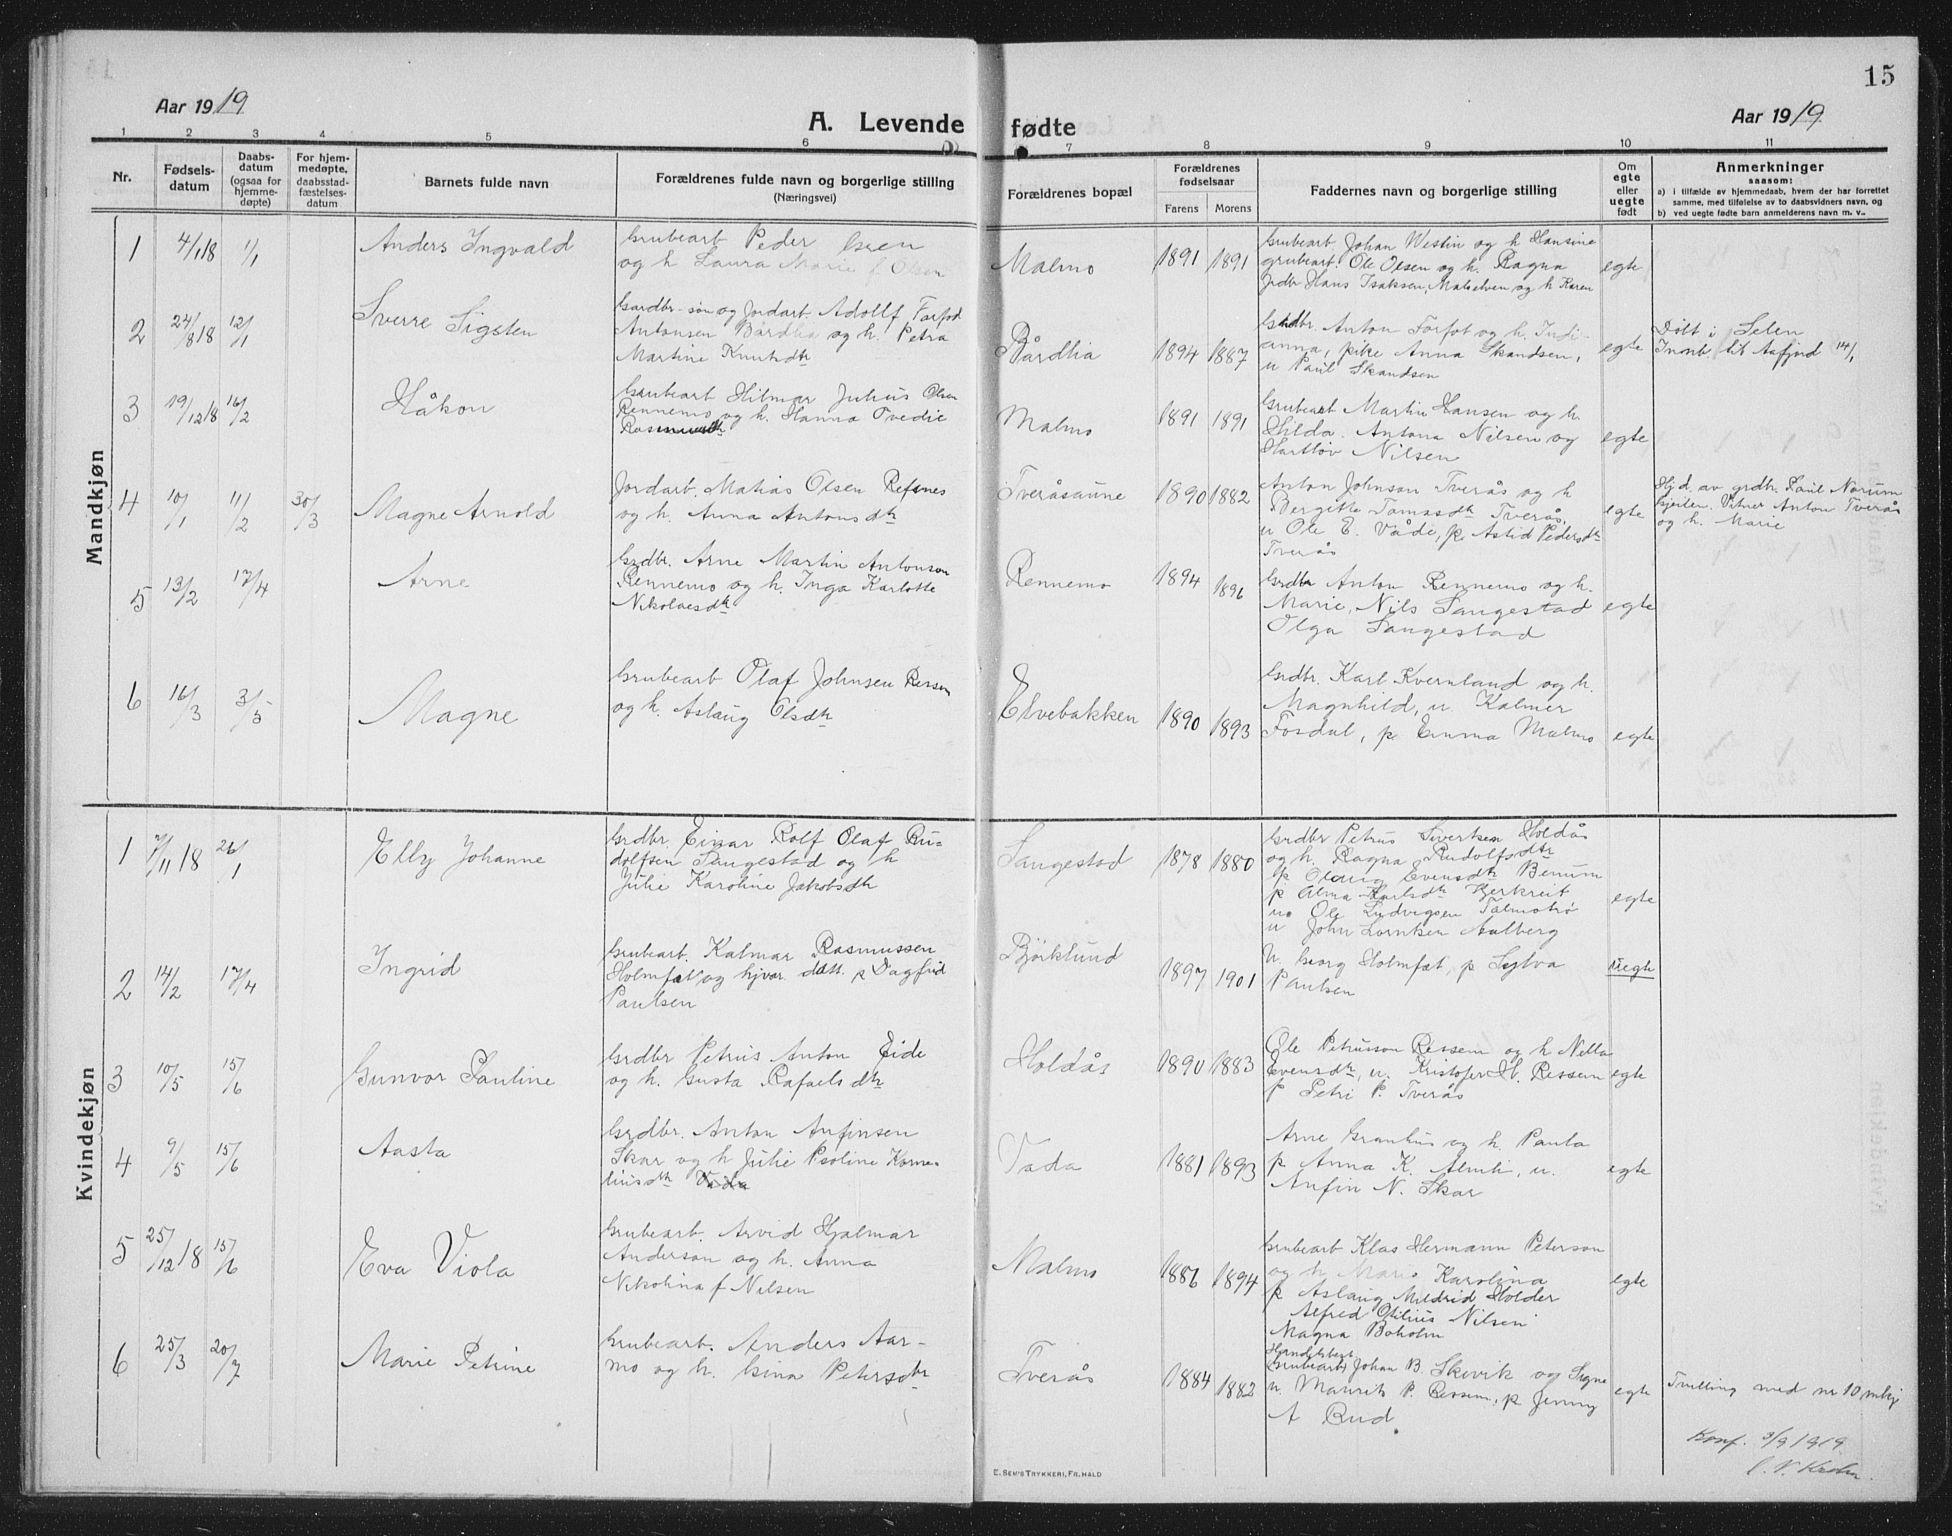 15
Aar 1919
A. Levende fødte
Aar 1919
1 2 3 4 5 6 7 8 9 10 11
Nr.
Fødsels-
datum
Daabs-
datum
(ogsaa for
hjemme-
døpte)
For hjem-
medøpte,
daabsstad-
fæstelses-
datum
Barnets fulde navn
Forældrenes fulde navn og borgerlige stilling
(Næringsvei)
Forældrenes bopæl
Forældrenes
fødselsaar
Farens Morens
Faddernes navn og borgerlige stilling
Om
egte
eller
uegte
født
Anmerkninger
saasom:
a) i tilfælde av hjemmedaab, hvem der har forrettet
samme, med tilføielse av to daabsvidners navn, og
b) ved uegte fødte barn anmelderens navn m. v.
Mandkjøn
1 4/1 18 1/1 Anders Ingvald
Grubearb. Peder
og h. Laura Marie f. Olsen
Malmo 1891 1891
Grubearb. Johan Westin og h. Hansine
grubearb. Ole Olsen og h. Ragna
Jrdbr Hans Isaksen, Malselven og h. Karen
egte
2 24/8 18 12/1 Sverre Sigsten
Gardbr.-søn og Jordarb. Adolf Forfod
Antonsen Bårdlia og h. Petra
Martine Knutsdtr
Bårdlia 1894 1887
Grdbr. Anton Forfot og h. Indi-
anna, pike Anna Skandsen,
u. Paul Skandsen
egte
Døbt i Selen
Innb. til Aafjord 14/1
3 19/12 18 16/2 Håkon
Grubearb Hilmar Julius Olsen
Rennemo og h. Hanna Tvedie
Rasmusdtr
Malmo 1891 1891
Grubearb Martin Hansen og h.
Hilda. Antona Nilsen og
Hartløv Nilsen
egte
4 10/1 11/2 30/3 Magne Arnold
Jordarb. Matias Olsen Refsnes
og h. Anna Antonsdtr
Tveråsaune 1890 1882
Anton Johnson Tverås og h
Bergitte Tomasdtr Tverås,
u Ole E. Våde, p. Astid Pedersdtr
Tverås
egte
Hjd. av grdbr. Paul Norum
Kjeilen. Vitner Anton Tverås
og h. Marie
5 13/2 17/4 Arne
Grdbr. Arne Martin Antonson
Rennemo og h. Inga Karlotte
Nikolaesdtr
Rennemo 1894 1896
Grdbr Anton Rennemo og h.
Marie, Nils Langestad
Olga Langestad
egte
6 16/3 3/5 Magne
Grubearb Olaf Johnsen Ressem
og h. Aslaug Olsdtr
Elvebakken 1890 1893
Grdbr. Karl Kvernland og h.
Magnhild, u. Kalmer
Fosdal, p Emma Malmo
egte
Kvindekjøn
1 7/11 18 26/1 Elly Johanne
Grdbr. Einar Rolf Olaf Ru-
dolfsen Langestad og h
Julie Karoline Jakobsdtr
Langestad 1878 1880
Grdbr Petrus Sivertsen Holdås
og h. Ragna Rudolfsdtr
p Olauig Evensdtr Benum
p Alma Karlsdtr Bjerkreit
u. Ole Ludvigsen Talmotrø
u John Lorntsen Aalberg
egte
2 14/2 17/4 Ingrid
Grubearb. Kalmar Rasmussen
Holmfæt og hjvær. datt. p Dagfrid
Paulsen
Björklund 1897 1901
U. Georg Holmfæt, p Sylva
Paulsen
uegte
3 10/5 15/6 Gunvor Pauline
Grdbr Petrus Anton Eide
og h. Gusta Rafaelsdtr
Holdås 1890 1883
Ole Petrusson Ressem og h Nella
Evensdtr, u. Kristofer H. Ressem
p Petri P. Tverås
egte
4 9/5 15/6 Aasta
Grdbr. Anton Anfinsen
Skar og h Julie Paoline Korne-
liusdtr Vada
Vada 1881 1893
Arne Granhus og h. Paula
p Anna K. Almli, u.
Anfin N. Skar
egte
5 25/12 18 15/6 Eva Viola
Grubearb. Arvid Hjalmar
Anderson og h. Anna
Nikolina f Nilsen
Malmo 1886 1894
Grubearb Klas Hermann Peterson
og h Maria Karolina
p Aslaug Mildrid Holder
Alfred Otilius Nilsen
Magna Boholm
egte
6 25/3 20/7 Marie Petrine
Grubearb. Anders Aar-
mo og h. Gina Petersdtr
Tverås 1884 1882
Handelsbest.
(Grubearb) Johan B. Skevik og Signe
u. Maurits P. Ressem, p Jenny
A Rud.
egte
Tvilling med nr 10 mkj
Konf. 3/9 1919.
E. Sem's Trykkeri, Fr.hald